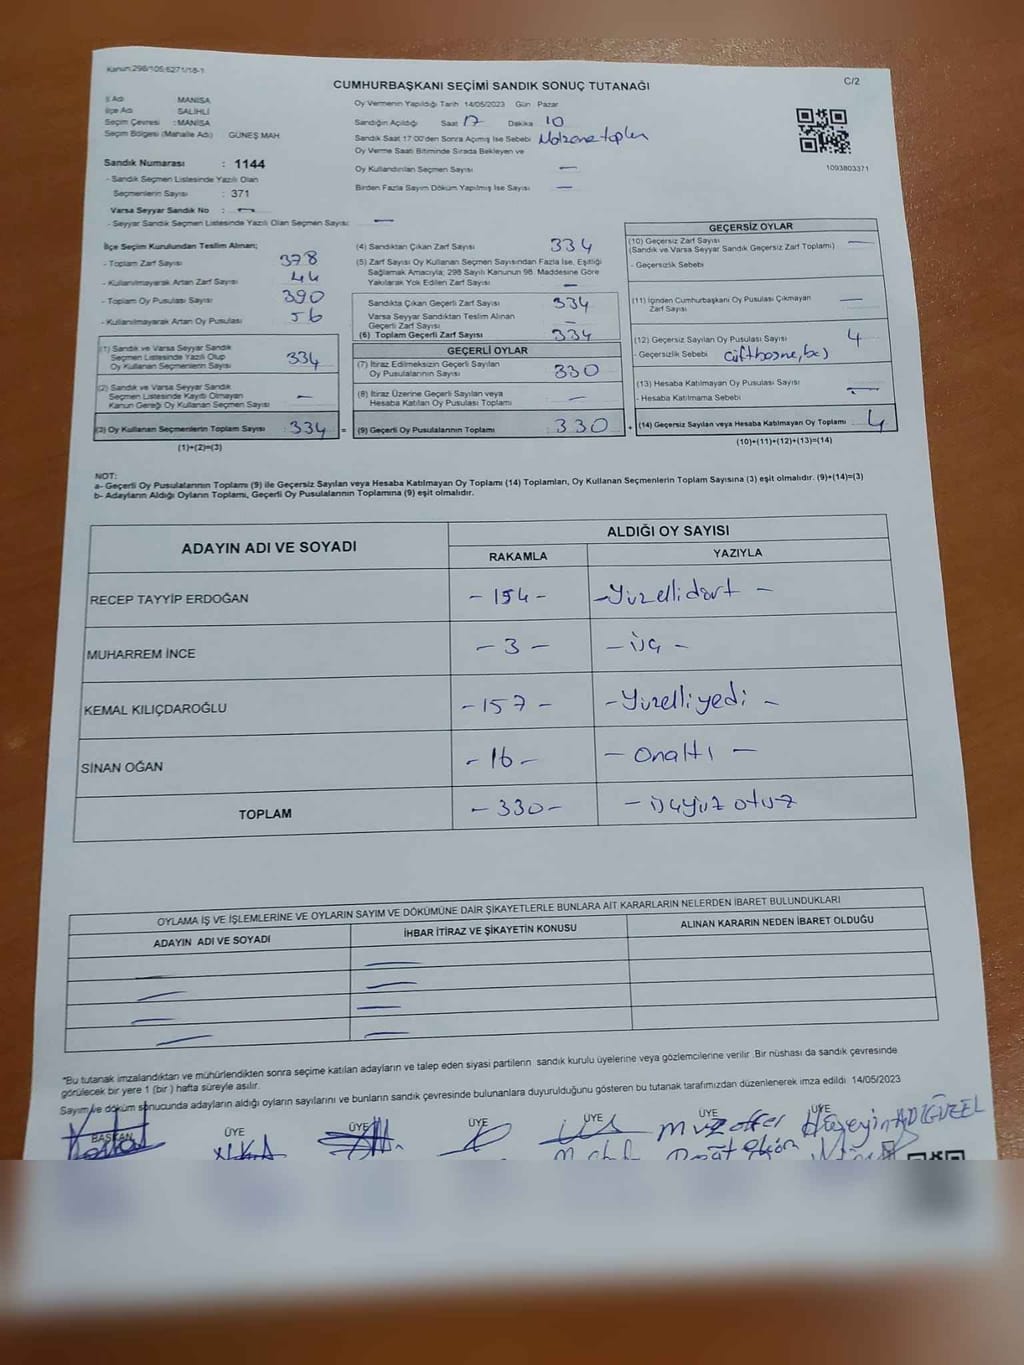 Kanun:298/105;6271/18-1
CUMHURBAŞKANI SEÇİMİ SANDIK SONUÇ TUTANAĞI
C/2
İl Adı MANİSA
İlçe Adı SALİHLİ
Seçim Çevresi : MANİSA
Seçim Bölgesi (Mahalle Adı) GÜNEŞ MAH
Oy Vermenin Yapıldığı Tarih 14/05/2023 Gün Pazar
Sandığın Açıldığı Saat 17 Dakika 10
Sandık Saat 17:00'den Sonra Açımış İse Sebebi
Oy Verme Saati Bitiminde Sırada Bekleyen ve
Oy Kullandırılan Seçmen Sayısı —
Birden Fazla Sayım Döküm Yapılmış İse Sayısı —
1093803371
Sandık Numarası : 1144
- Sandık Seçmen Listesinde Yazılı Olan
Seçmenlerin Sayısı : 371
Varsa Seyyar Sandık No : —
- Seyyar Sandık Seçmen Listesinde Yazılı Olan Seçmen Sayısı: —
İlçe Seçim Kurulundan Teslim Alınan;
- Toplam Zarf Sayısı 378
- Kullanılmayarak Artan Zarf Sayısı 44
- Toplam Oy Pusulası Sayısı 390
- Kullanılmayarak Artan Oy Pusulası 56
(1) Sandık ve Varsa Seyyar Sandık
Seçmen Listesinde Yazılı Olup
Oy Kullanan Seçmenlerin Sayısı 334
(2) Sandık ve Varsa Seyyar Sandık
Seçmen Listesinde Kayıtlı Olmayan
Kanun Gereği Oy Kullanan Seçmen Sayısı —
(3) Oy Kullanan Seçmenlerin Toplam Sayısı 334 =
(1)+(2)=(3)
(4) Sandıktan Çıkan Zarf Sayısı 334
(5) Zarf Sayısı Oy Kullanan Seçmen Sayısından Fazla İse, Eşitliği
Sağlamak Amacıyla; 298 Sayılı Kanunun 98. Maddesine Göre
Yakılarak Yok Edilen Zarf Sayısı —
Sandıkta Çıkan Geçerli Zarf Sayısı 334
Varsa Seyyar Sandıktan Teslim Alınan
Geçerli Zarf Sayısı —
(6) Toplam Geçerli Zarf Sayısı 334
GEÇERLİ OYLAR
(7) İtiraz Edilmeksizin Geçerli Sayılan
Oy Pusulalarının Sayısı 330
(8) İtiraz Üzerine Geçerli Sayılan veya
Hesaba Katılan Oy Pusulası Toplamı —
(9) Geçerli Oy Pusulalarının Toplamı 330 +
GEÇERSİZ OYLAR
(10) Geçersiz Zarf Sayısı —
(Sandık ve Varsa Seyyar Sandık Geçersiz Zarf Toplamı)
- Geçersizlik Sebebi
(11) İçinden Cumhurbaşkanı Oy Pusulası Çıkmayan
Zarf Sayısı —
(12) Geçersiz Sayılan Oy Pusulası Sayısı 4
- Geçersizlik Sebebi
(13) Hesaba Katılmayan Oy Pusulası Sayısı
- Hesaba Katılmama Sebebi —
(14) Geçersiz Sayılan veya Hesaba Katılmayan Oy Toplamı 4
(10)+(11)+(12)+(13)=(14)
NOT:
a- Geçerli Oy Pusulalarının Toplamı (9) ile Geçersiz Sayılan veya Hesaba Katılmayan Oy Toplamı (14) Toplamları, Oy Kullanan Seçmenlerin Toplam Sayısına (3) eşit olmalıdır. (9)+(14)=(3)
b- Adayların Aldığı Oyların Toplamı, Geçerli Oy Pusulalarının Toplamına (9) eşit olmalıdır.
ADAYIN ADI VE SOYADI
ALDIĞI OY SAYISI
RAKAMLA YAZIYLA
RECEP TAYYİP ERDOĞAN - 154 - - Yüzellidört -
MUHARREM İNCE - 3 - - üç -
KEMAL KILIÇDAROĞLU - 157 - - Yüzelliyedi -
SİNAN OĞAN - 16 - - onaltı -
TOPLAM - 330 - - üçyüz otuz
OYLAMA İŞ VE İŞLEMLERİNE VE OYLARIN SAYIM VE DÖKÜMÜNE DAİR ŞİKAYETLERLE BUNLARA AİT KARARLARIN NELERDEN İBARET BULUNDUKLARI
ADAYIN ADI VE SOYADI İHBAR İTİRAZ VE ŞİKAYETİN KONUSU ALINAN KARARIN NEDEN İBARET OLDUĞU
*Bu tutanak imzalandıktan ve mühürlendikten sonra seçime katılan adayların ve talep eden siyasi partilerin sandık kurulu üyelerine veya gözlemcilerine verilir .Bir nüshası da sandık çevresinde
görülecek bir yere 1 (bir ) hafta süreyle asılır.
Sayım ve döküm sonucunda adayların aldığı oyların sayılarını ve bunların sandık çevresinde bulunanlara duyurulduğunu gösteren bu tutanak tarafımızdan düzenlenerek imza edildi. 14/05/2023
BAŞKAN ÜYE ÜYE ÜYE ÜYE ÜYE ÜYE
Muzaffer Hüseyin ADIGÜZEL